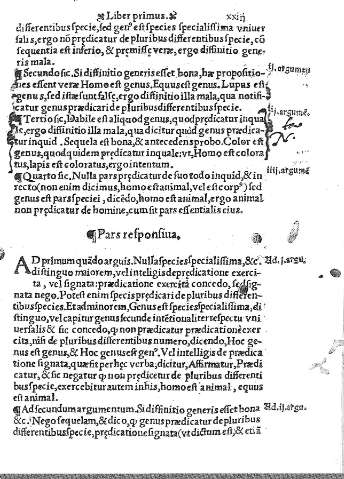 Liber primus. xxiij
differentibus specie, sed genꝰ est species specialissima vniuer
salis, ergo nõ prędicatur de pluribus differentibus specie, cõ
sequentia est inferio, & pręmissę verę, ergo diffinitio gene-
ris mala.
¶Secundo sic. Si diffinitio generis esset bona, hæ propositio- ij. argumẽ
nes essent veræ Homo est genus, Equus est genus. Lupus est
genus, sed istæ sunt falsę, ergo diffinitio mala, qua notifi-
catur genus prædicari de pluribus differentibus specie.
¶Tertio sic, Dabile est aliquod genus, quod prędicatur in qua iij. argumẽ.
le, ergo diffinitio illa mala, qua dicitur quòd genus prædica-
tur in quid. Sequela est bona, & antecedens probo. Color est
genus, quod quidem prędicatur in quale: vt, Homo est colora
tus, lapis est coloratus, ergo intentum.
¶Quarto sic. Nulla pars prędicatur de suo todo in quid, & in iiij. argumẽ
recto (non enim dicimus, homo est animal, vel est corpꝰ) sed
genus est pars speciei, dicẽdo, homo est animal, ergo animal
non prędicatur de homine, cum sit pars essentialis eius.
¶Pars responsiua.
AD primum quãdo arguis. Nulla species specialissima, &c. Ad. j. argu.
distinguo maiorem, vel intelligis de prędicatione exerci
ta, vel signata: prædicatione exercita concedo, sed sig-
nata nego. Potest enim species prędicari de pluribus differen-
tibus specie. Et ad minorem, Genus est species specialissima, di
stinguo, vel capitur genus secunde intẽtionaliter respectu vni
uersalis & sic concedo, ꝙ non prædicatur prædicatiõe exer
cita, nisi de pluribus differentibus numero, dicendo, Hoc ge-
nus est genus, & Hoc genus est genꝰ. Vel intelligis de prædica
tione signata, quæ fit per hęc verba, dicitur, Affirmatur, Prædi
catur, & sic negatur ꝙ non prædicetur de pluribus differenti
bus specie, exercebitur autem in his, homo est animal, equus
est animal.
¶Ad secundum argumentum. Si diffinitio generis esset bona Ad. ij. argu.
&c. Nego sequelam, & dico, ꝙ genus prædicatur de pluribus
differentibus specie, prędicatione signata (vt dictum est) & etiã